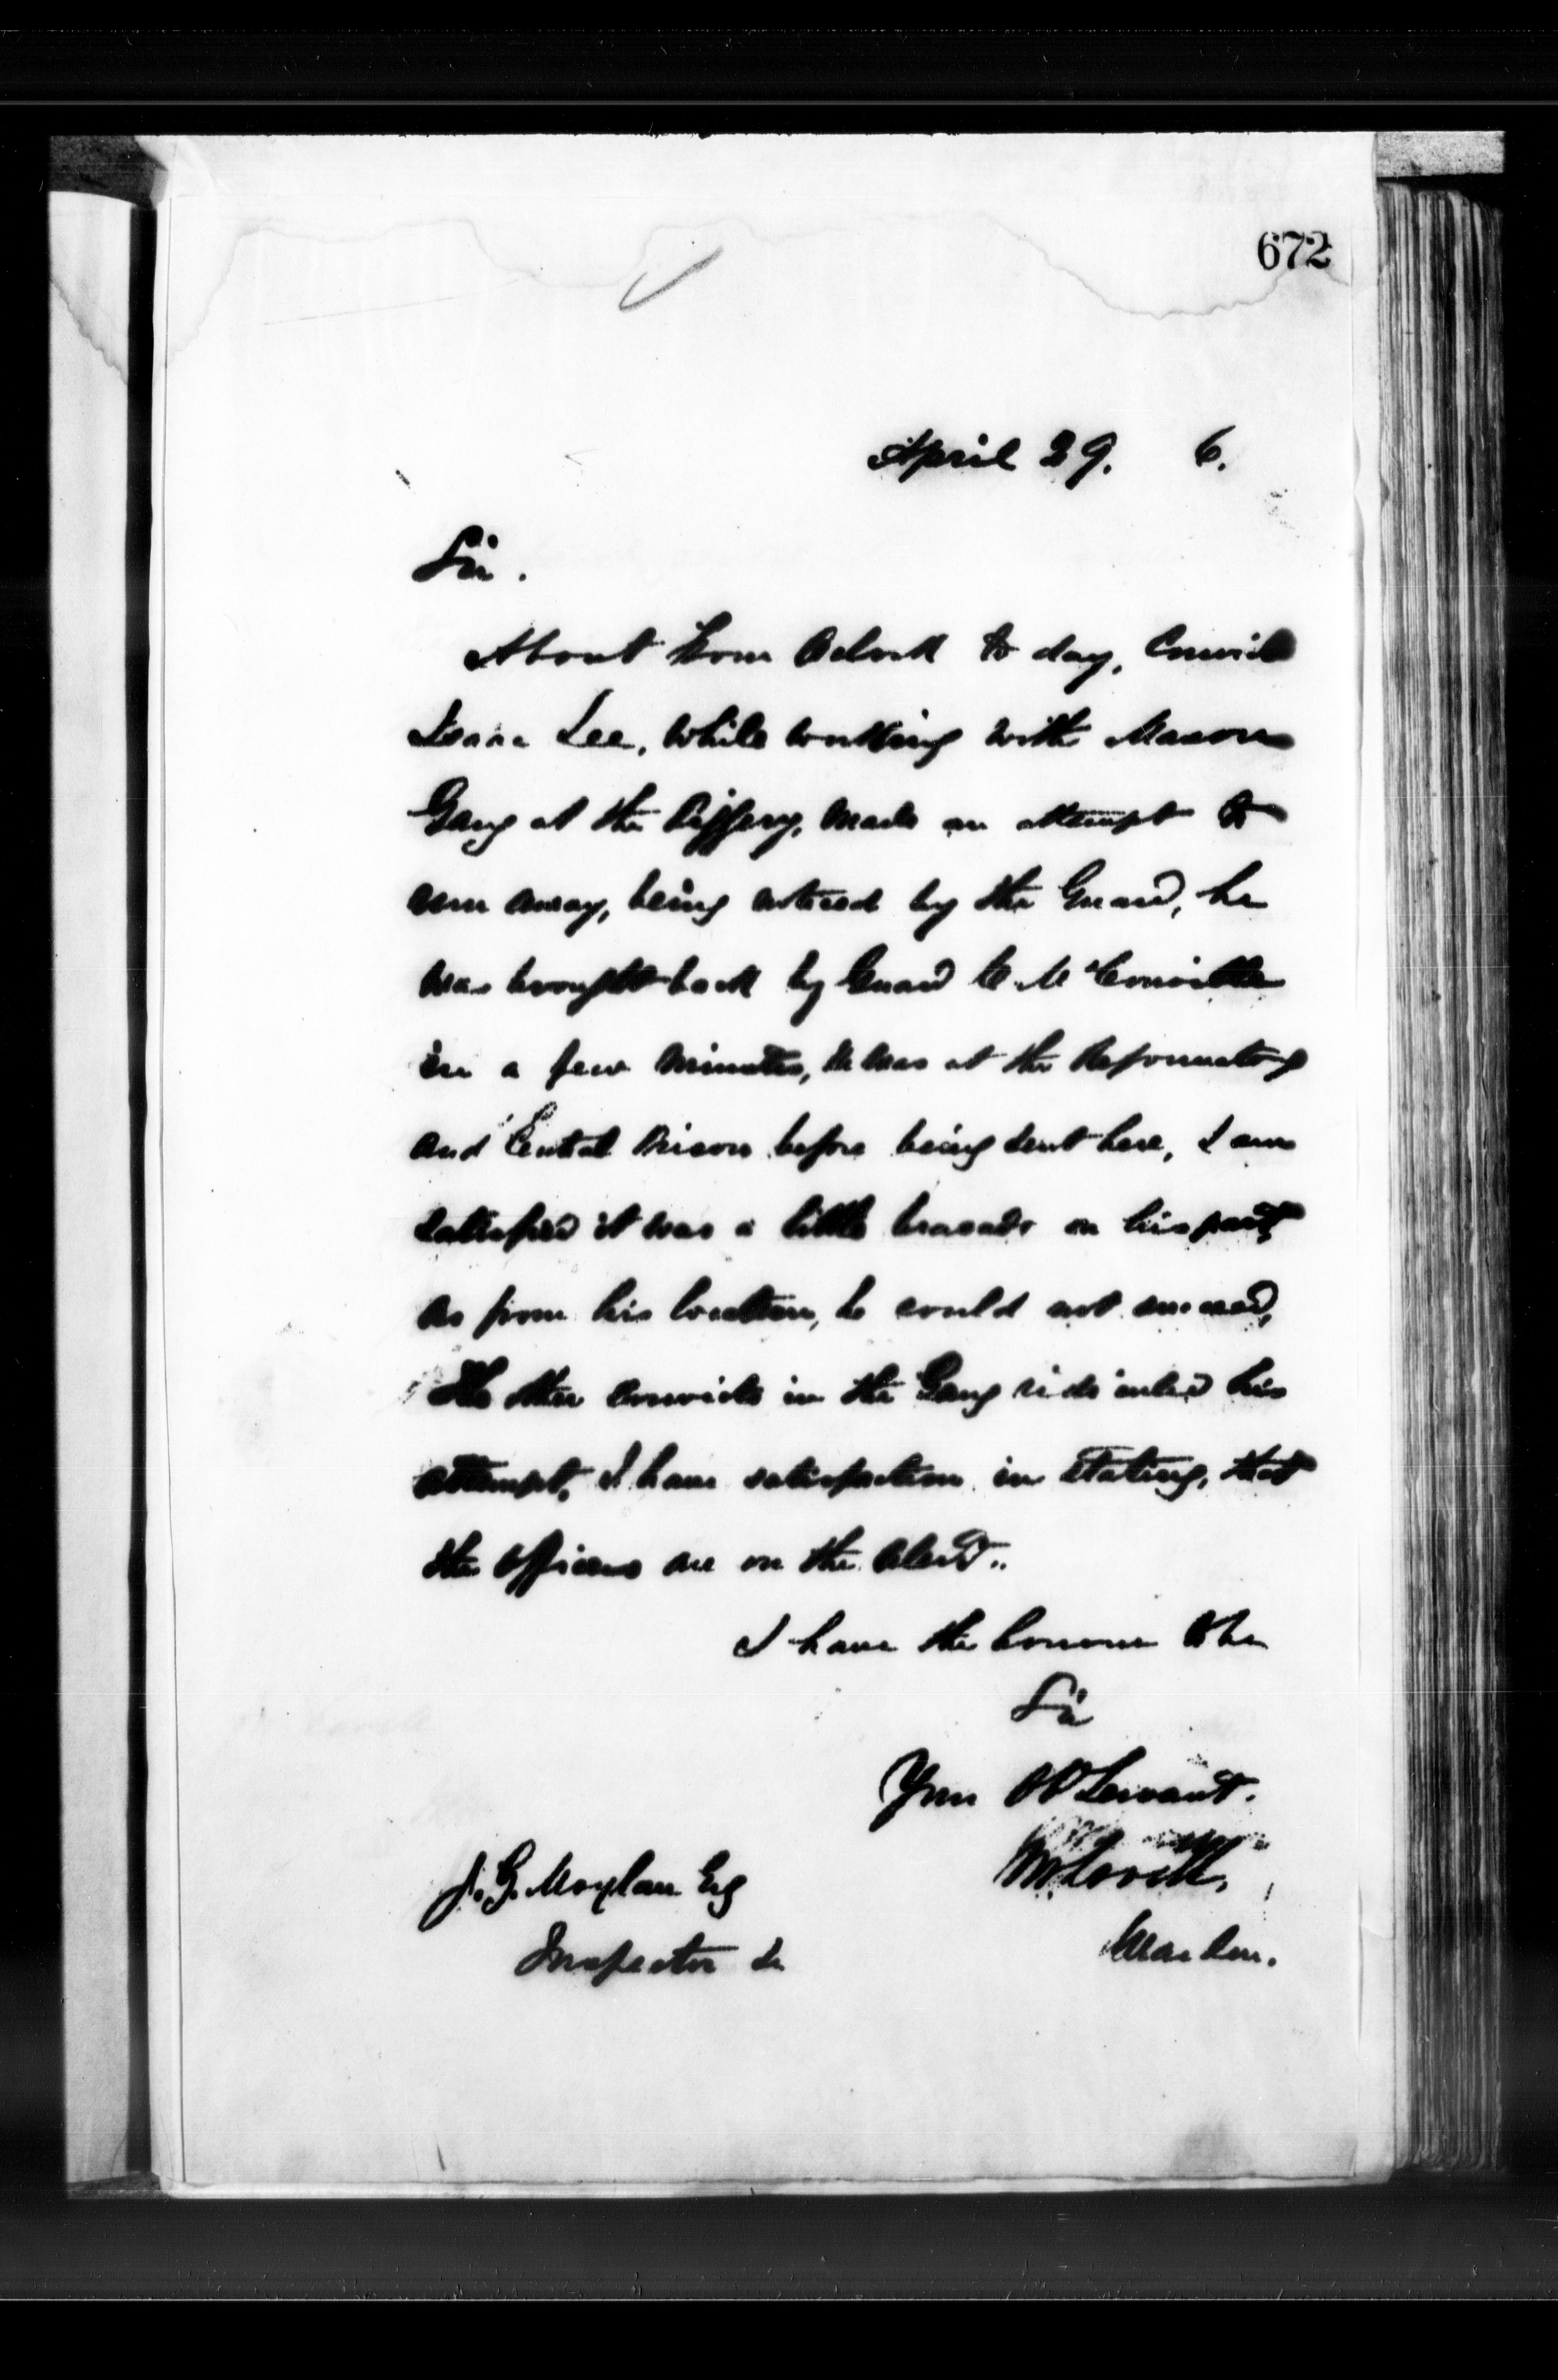 672
April 29. 6.
Sir.
About four Oclock to day, Convict
Isaac Lee, while working with Mason
Gang at the Piggery, made an attempt to
run away, being noticed by the Guard, he
was brought back by Guard C. McConville
in a few minutes, he was at the Reformatory
and Central Prison before being sent here, I am
satisfied it was a little bravado on his part,
as from his location, he could not succeed,
The other convicts in the Gang ridiculed his
attempt, I have satisfaction in stating, that
the Officers are on the alert..
I have the honour to be
Sir
Your Ob Servant.
M Lavell,
Warden.
J. G. Moylan Esq
Inspector &c